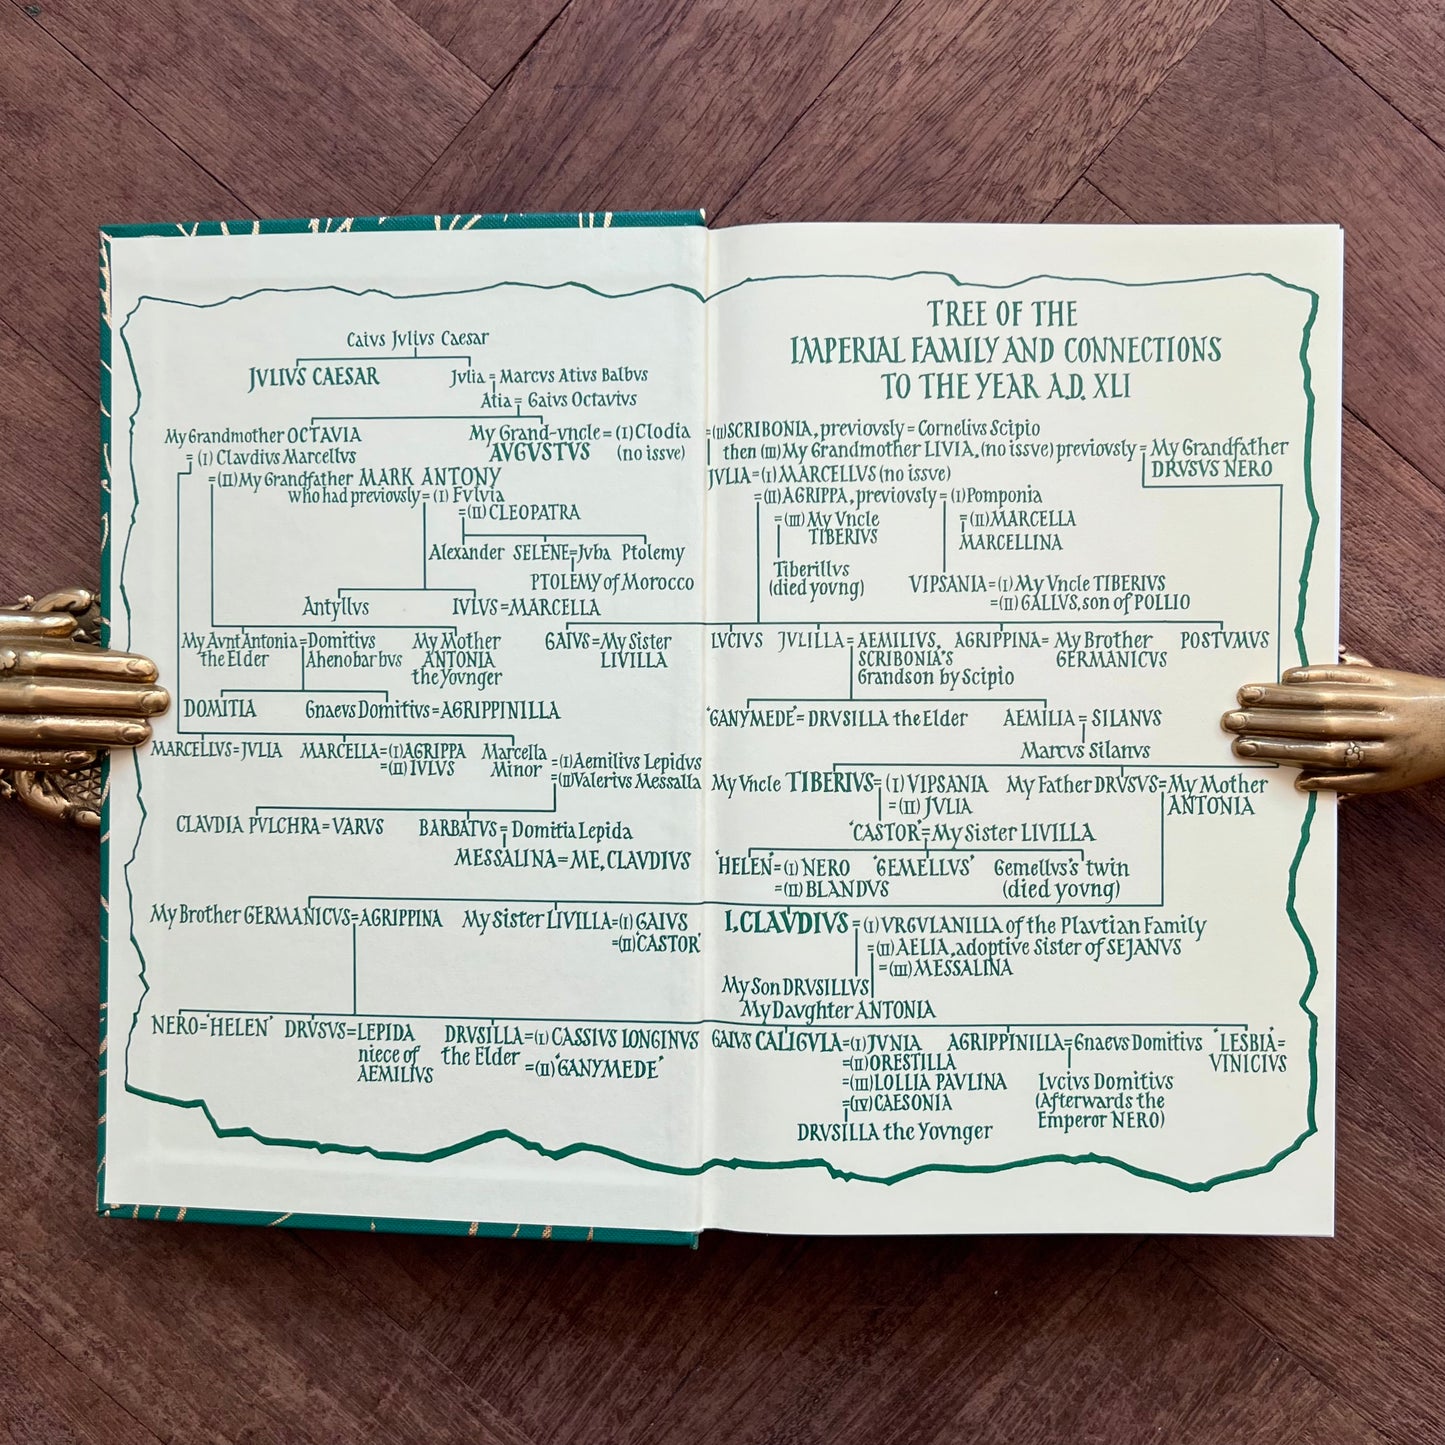 Caivs Jvlivs Caesar
JVLIVS CAESAR
Jvlia = Marcvs Ativs Balbvs
Atia = Gaivs Octavivs
My Grandmother OCTAVIA
= (I) Clavdivs Marcellvs
= (II) My Grandfather MARK ANTONY
who had previovsly = (I) Fvlvia
= (II) CLEOPATRA
My Grand-vncle = (I) Clodia
AVGVSTVS (no issve)
Alexander SELENE = Jvba Ptolemy
PTOLEMY of Morocco
Antyllvs IVLVS = MARCELLA
My Avnt Antonia = Domitivs
the Elder Ahenobarbvs
My Mother
ANTONIA
the Yovnger
GAIVS = My Sister
LIVILLA
DOMITIA Gnaevs Domitivs = AGRIPPINILLA
MARCELLVS = JVLIA MARCELLA = (I) AGRIPPA
= (II) IVLVS
Marcella
Minor
= (I) Aemilivs Lepidvs
= (II) Valerivs Messalla
CLAVDIA PVLCHRA = VARVS BARBATVS = Domitia Lepida
MESSALINA = ME, CLAVDIVS
My Brother GERMANICVS = AGRIPPINA My Sister LIVILLA = (I) GAIVS
= (II) 'CASTOR'
NERO = 'HELEN' DRVSVS = LEPIDA
niece of
AEMILIVS
DRVSILLA = (I) CASSIVS LONGINVS
the Elder = (II) 'GANYMEDE'
TREE OF THE
IMPERIAL FAMILY AND CONNECTIONS
TO THE YEAR A.D. XLI
= (II) SCRIBONIA, previovsly = Cornelivs Scipio
then (III) My Grandmother LIVIA, (no issve) previovsly = My Grandfather
DRVSVS NERO
JVLIA = (I) MARCELLVS (no issve)
= (II) AGRIPPA, previovsly = (I) Pomponia
= (III) My Vncle
TIBERIVS
= (II) MARCELLA
MARCELLINA
Tiberillvs
(died yovng)
VIPSANIA = (I) My Vncle TIBERIVS
= (II) GALLVS, son of POLLIO
LVCIVS JVLILLA = AEMILIVS,
SCRIBONIA'S
Grandson by Scipio
AGRIPPINA = My Brother
GERMANICVS
POSTVMVS
'GANYMEDE' = DRVSILLA the Elder AEMILIA = SILANVS
Marcvs Silanvs
My Vncle TIBERIVS = (I) VIPSANIA
= (II) JVLIA
My Father DRVSVS = My Mother
ANTONIA
'CASTOR' = My Sister LIVILLA
'HELEN' = (I) NERO
= (II) BLANDVS
'GEMELLVS' Gemellvs's twin
(died yovng)
I, CLAVDIVS = (I) VRGVLANILLA of the Plavtian Family
= (II) AELIA, adoptive Sister of SEJANVS
= (III) MESSALINA
My Son DRVSILLVS
My Davghter ANTONIA
GAIVS CALIGVLA = (I) JVNIA
= (II) ORESTILLA
= (III) LOLLIA PAVLINA
= (IV) CAESONIA
DRVSILLA the Yovnger
AGRIPPINILLA = Gnaevs Domitivs
Lvcivs Domitivs
(Afterwards the
Emperor NERO)
'LESBIA' =
VINICIVS